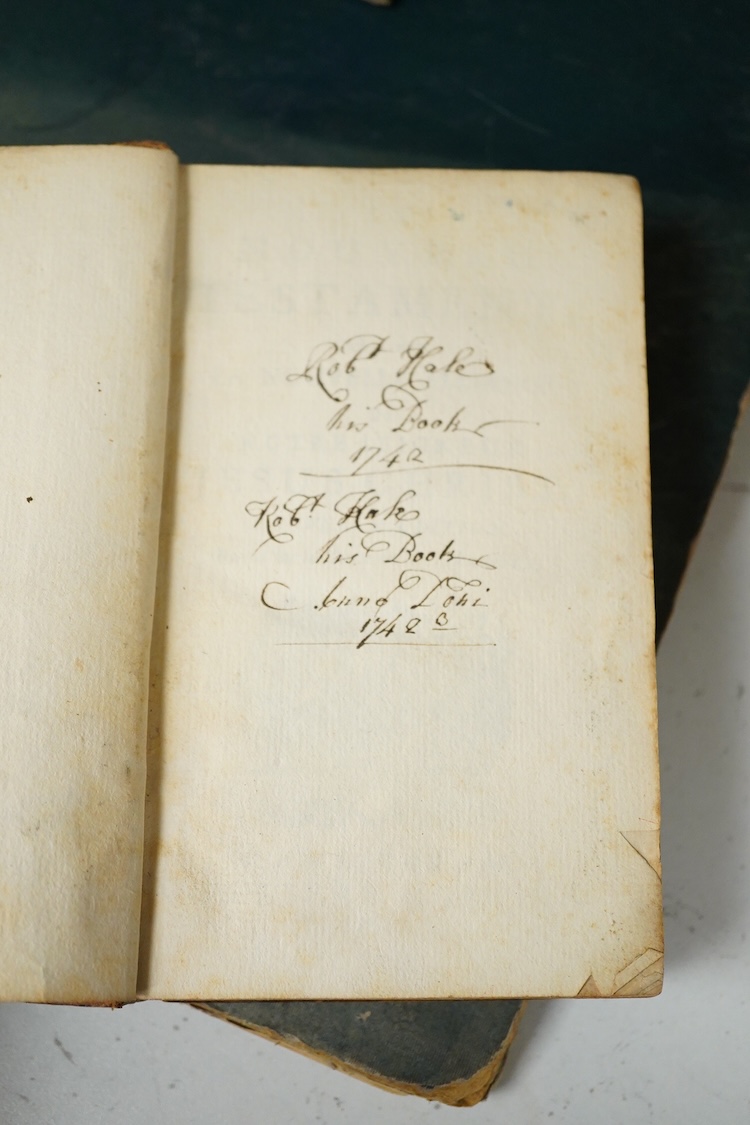 Robt Hale
his Book
1742
Robt Hale
his Book
Anno Domi
1742 3